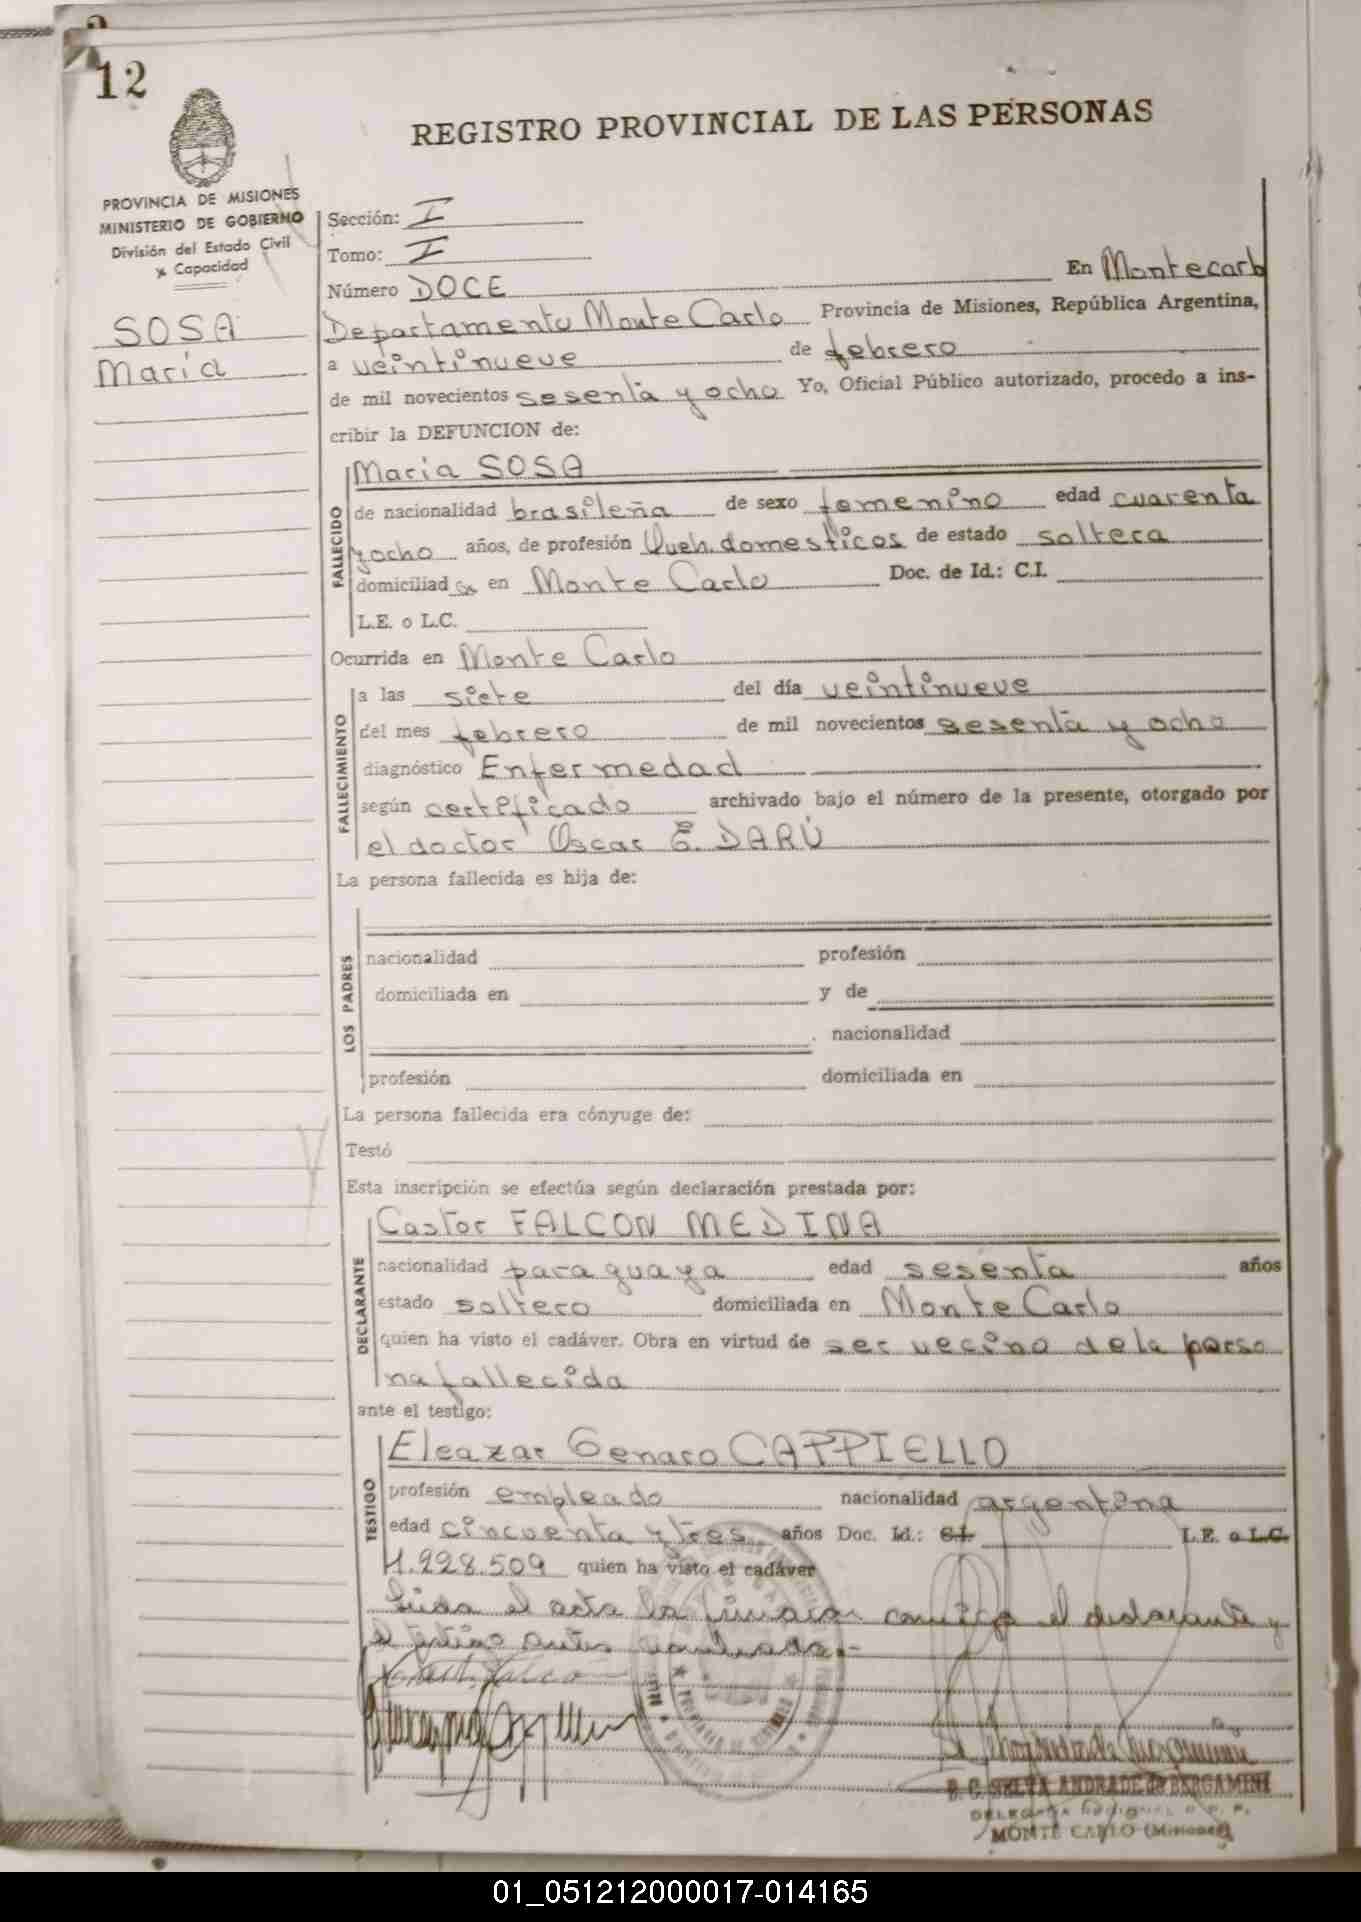 12
REGISTRO PROVINCIAL DE LAS PERSONAS
PROVINCIA DE MISIONES
MINISTERIO DE GOBIERNO
División del Estado Civil
y Capacidad
SOSA
Maria
Sección: I
Tomo: I
Número DOCE En Montecarlo
Departamento Monte Carlo Provincia de Misiones, República Argentina,
a veintinueve de febrero
de mil novecientos sesenta y ocho Yo, Oficial Público autorizado, procedo a ins-
cribir la DEFUNCION de:
FALLECIDO
Maria SOSA
de nacionalidad brasileña de sexo femenino edad cuarenta
y ocho años, de profesión Queh. domesticos de estado soltera
domiciliada en Monte Carlo Doc. de Id.: C.I.
L.E. o L.C.
Ocurrida en Monte Carlo
FALLECIMIENTO
a las siete del día veintinueve
del mes febrero de mil novecientos sesenta y ocho
diagnóstico Enfermedad
según certificado archivado bajo el número de la presente, otorgado por
el doctor Oscar E. DARÚ
La persona fallecida es hija de:
LOS PADRES
nacionalidad profesión
domiciliada en y de
nacionalidad
profesión domiciliada en
La persona fallecida era cónyuge de:
Testó
Esta inscripción se efectúa según declaración prestada por:
DECLARANTE
Castor FALCON MEDINA
nacionalidad paraguaya edad sesenta años
estado soltero domiciliada en Monte Carlo
quien ha visto el cadáver. Obra en virtud de ser vecino de la perso
na fallecida
ante el testigo:
TESTIGO
Eleazar Genaro CAPPIELLO
profesión empleado nacionalidad argentina
edad cincuenta y tres años Doc. Id.: C.I. L.E. o L.C.
4.228.509 quien ha visto el cadáver
Leida el acta la firman conmigo el declarante y
el testigo antes nombrados.-
B. C. SELVA ANDRADE de BERGAMINI
MONTE CARLO (Misiones)
01_051212000017-014165